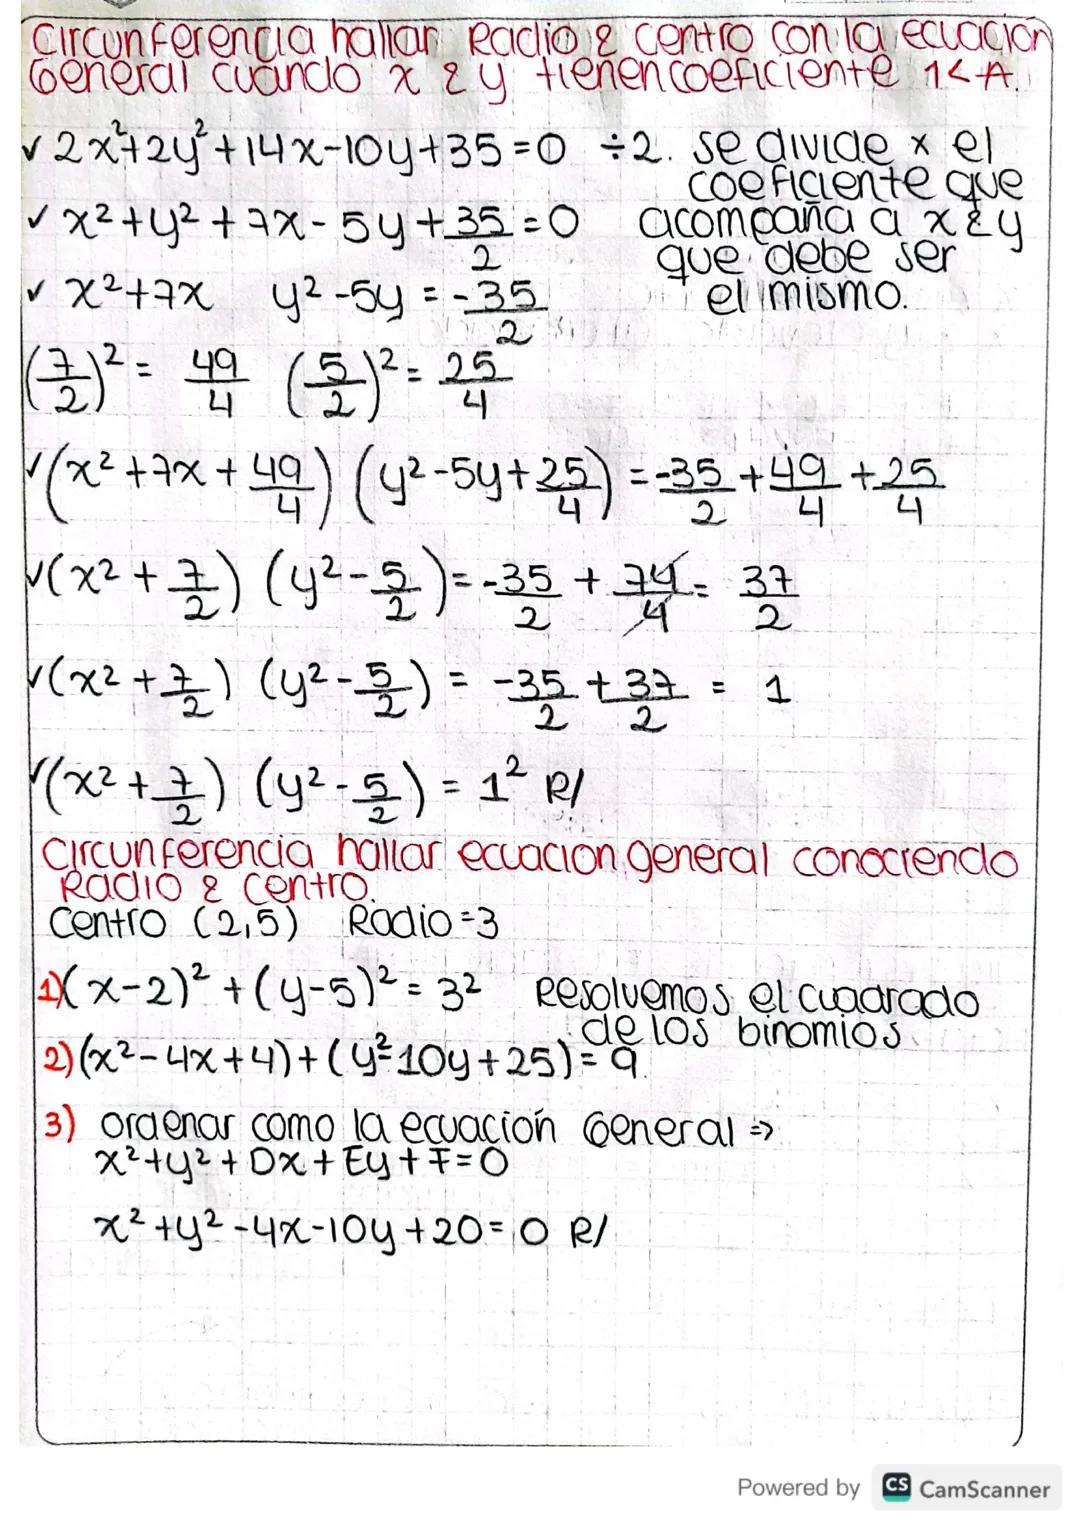 Circunferencia hallar Radio & centro con la ecuación
General cuando x & y tienen coeficiente 1<A.
✓ 2x²+2y²+14x-10y+35=0 ÷2. se divide x el
coeficiente que
✓ x²+y²+7x-5y+35/2=0 acompaña a x & y
que debe ser
✓ x²+7x y²-5y = -35/2 el mismo.
(7/2)² = 49/4 (5/2)² = 25/4
✓ (x²+7x+49/4) (y²-5y+25/4) = -35/2+49/4+25/4
✓ (x²+7/2) (y²-5/2) = -35/2 + 74/4 = 37/2
✓ (x²+7/2) (y²-5/2) = -35/2 + 37/2 = 1
✓ (x²+7/2) (y²-5/2) = 1² R/
Circunferencia hallar ecuacion general conociendo
Radio & centro.
Centro (2,5) Radio=3
1) (x-2)²+(y-5)²=3² Resolvemos el cuadrado
de los binomios
2) (x²-4x+4)+(y²-10y+25)=9.
3) ordenar como la ecuación General ⇒
x²+y²+Dx+Ey+F=0
x²+y²-4x-10y+20=0 R/
Powered by CS CamScanner